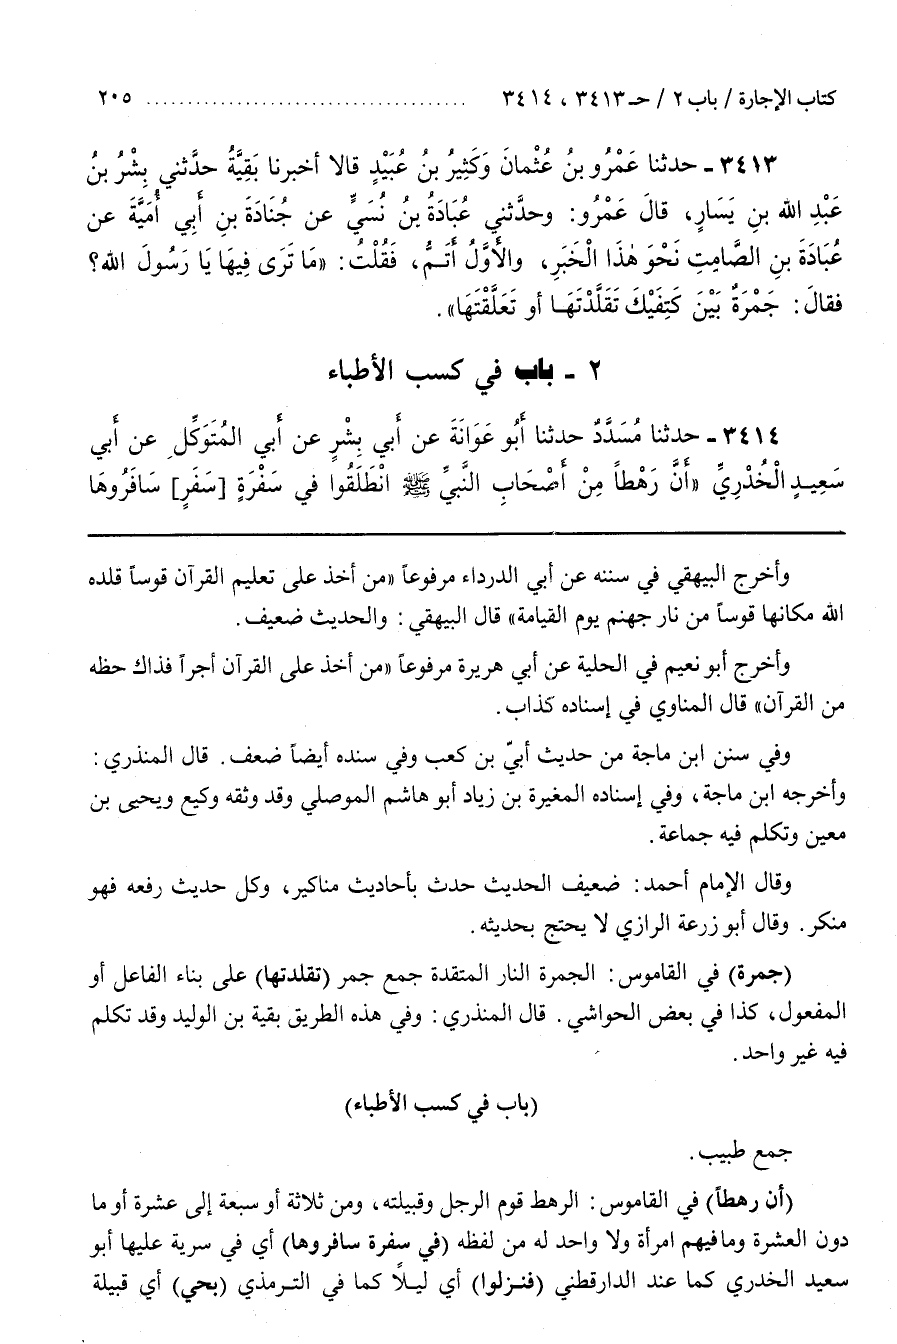 كتاب الإجارة / باب ٢ / حـ ٣٤١٣ ، ٣٤١٤ ........................................ ٢٠٥
٣٤١٣ ـ حدثنا عَمْرُو بنُ عُثْمانَ وَكَثِيرُ بنُ عُبَيْدٍ قالا أخبرنا بَقِيَّةُ حدَّثني بِشْرُ بنُ
عَبْدِ الله بنِ يَسَارٍ، قالَ عَمْرُو: وحدَّثني عُبَادَةُ بنُ نُسَيٍّ عن جُنَادَةَ بنِ أبي أُمَيَّةَ عن
عُبَادَةَ بنِ الصَّامِتِ نَحْوَ هٰذَا الْخَبَرِ، والأوَّلُ أتَـمُّ، فَقُلْتُ: «مَا تَرَى فِيهَا يَا رَسُولَ الله؟
فقالَ: جَمْرَةٌ بَيْنَ كَتِفَيْكَ تَقَلَّدْتَهَـا أو تَعَلَّقْتَهَا».
٢ ـ باب في كسب الأطباء
٣٤١٤ ـ حدثنا مُسَدَّدٌ حدثنا أَبُو عَوَانَةَ عن أَبي بِشْرٍ عن أَبي المُتَوَكِّلِ عن أَبي
سَعِيـدٍ الْخُدْرِيِّ «أَنَّ رَهْطاً مِنْ أَصْحَابِ النَّبيِّ ﷺ انْطَلَقُوا في سَفْرَةٍ [سَفَرٍ] سَافَرُوهَا
وأخرج البيهقي في سننه عن أبي الدرداء مرفوعاً «من أخذ على تعليم القرآن قوساً قلده
الله مكانها قوساً من نار جهنم يوم القيامة» قال البيهقي: والحديث ضعيف.
وأخرج أبو نعيم في الحلية عن أبي هريرة مرفوعاً «من أخذ على القرآن أجراً فذاك حظه
من القرآن» قال المناوي في إسناده كذاب.
وفي سنن ابن ماجة من حديث أبيّ بن كعب وفي سنده أيضاً ضعف. قال المنذري:
وأخرجه ابن ماجة، وفي إسناده المغيرة بن زياد أبو هاشم الموصلي وقد وثقه وكيع ويحيى بن
معين وتكلم فيه جماعة.
وقال الإمام أحمد: ضعيف الحديث حدث بأحاديث مناكير، وكل حديث رفعه فهو
منكر. وقال أبو زرعة الرازي لا يحتج بحديثه.
(جمرة) في القاموس: الجمرة النار المتقدة جمع جمر (تقلدتها) على بناء الفاعل أو
المفعول، كذا في بعض الحواشي. قال المنذري: وفي هذه الطريق بقية بن الوليد وقد تكلم
فيه غير واحد.
(باب في كسب الأطباء)
جمع طبيب.
(أن رهطاً) في القاموس: الرهط قوم الرجل وقبيلته، ومن ثلاثة أو سبعة إلى عشرة أو ما
دون العشرة ومافيهم امرأة ولا واحد له من لفظه (في سفرة سافروها) أي في سرية عليها أبو
سعيد الخدري كما عند الدارقطني (فنزلوا) أي ليلاً كما في الترمذي (بحي) أي قبيلة